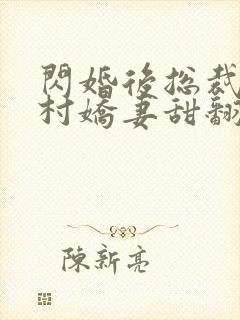 閃婚後總裁
村嬌妻甜翻
陳新亮